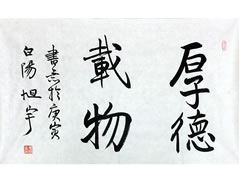 厚德
載物
書赤於庚寅
白陽坦宇